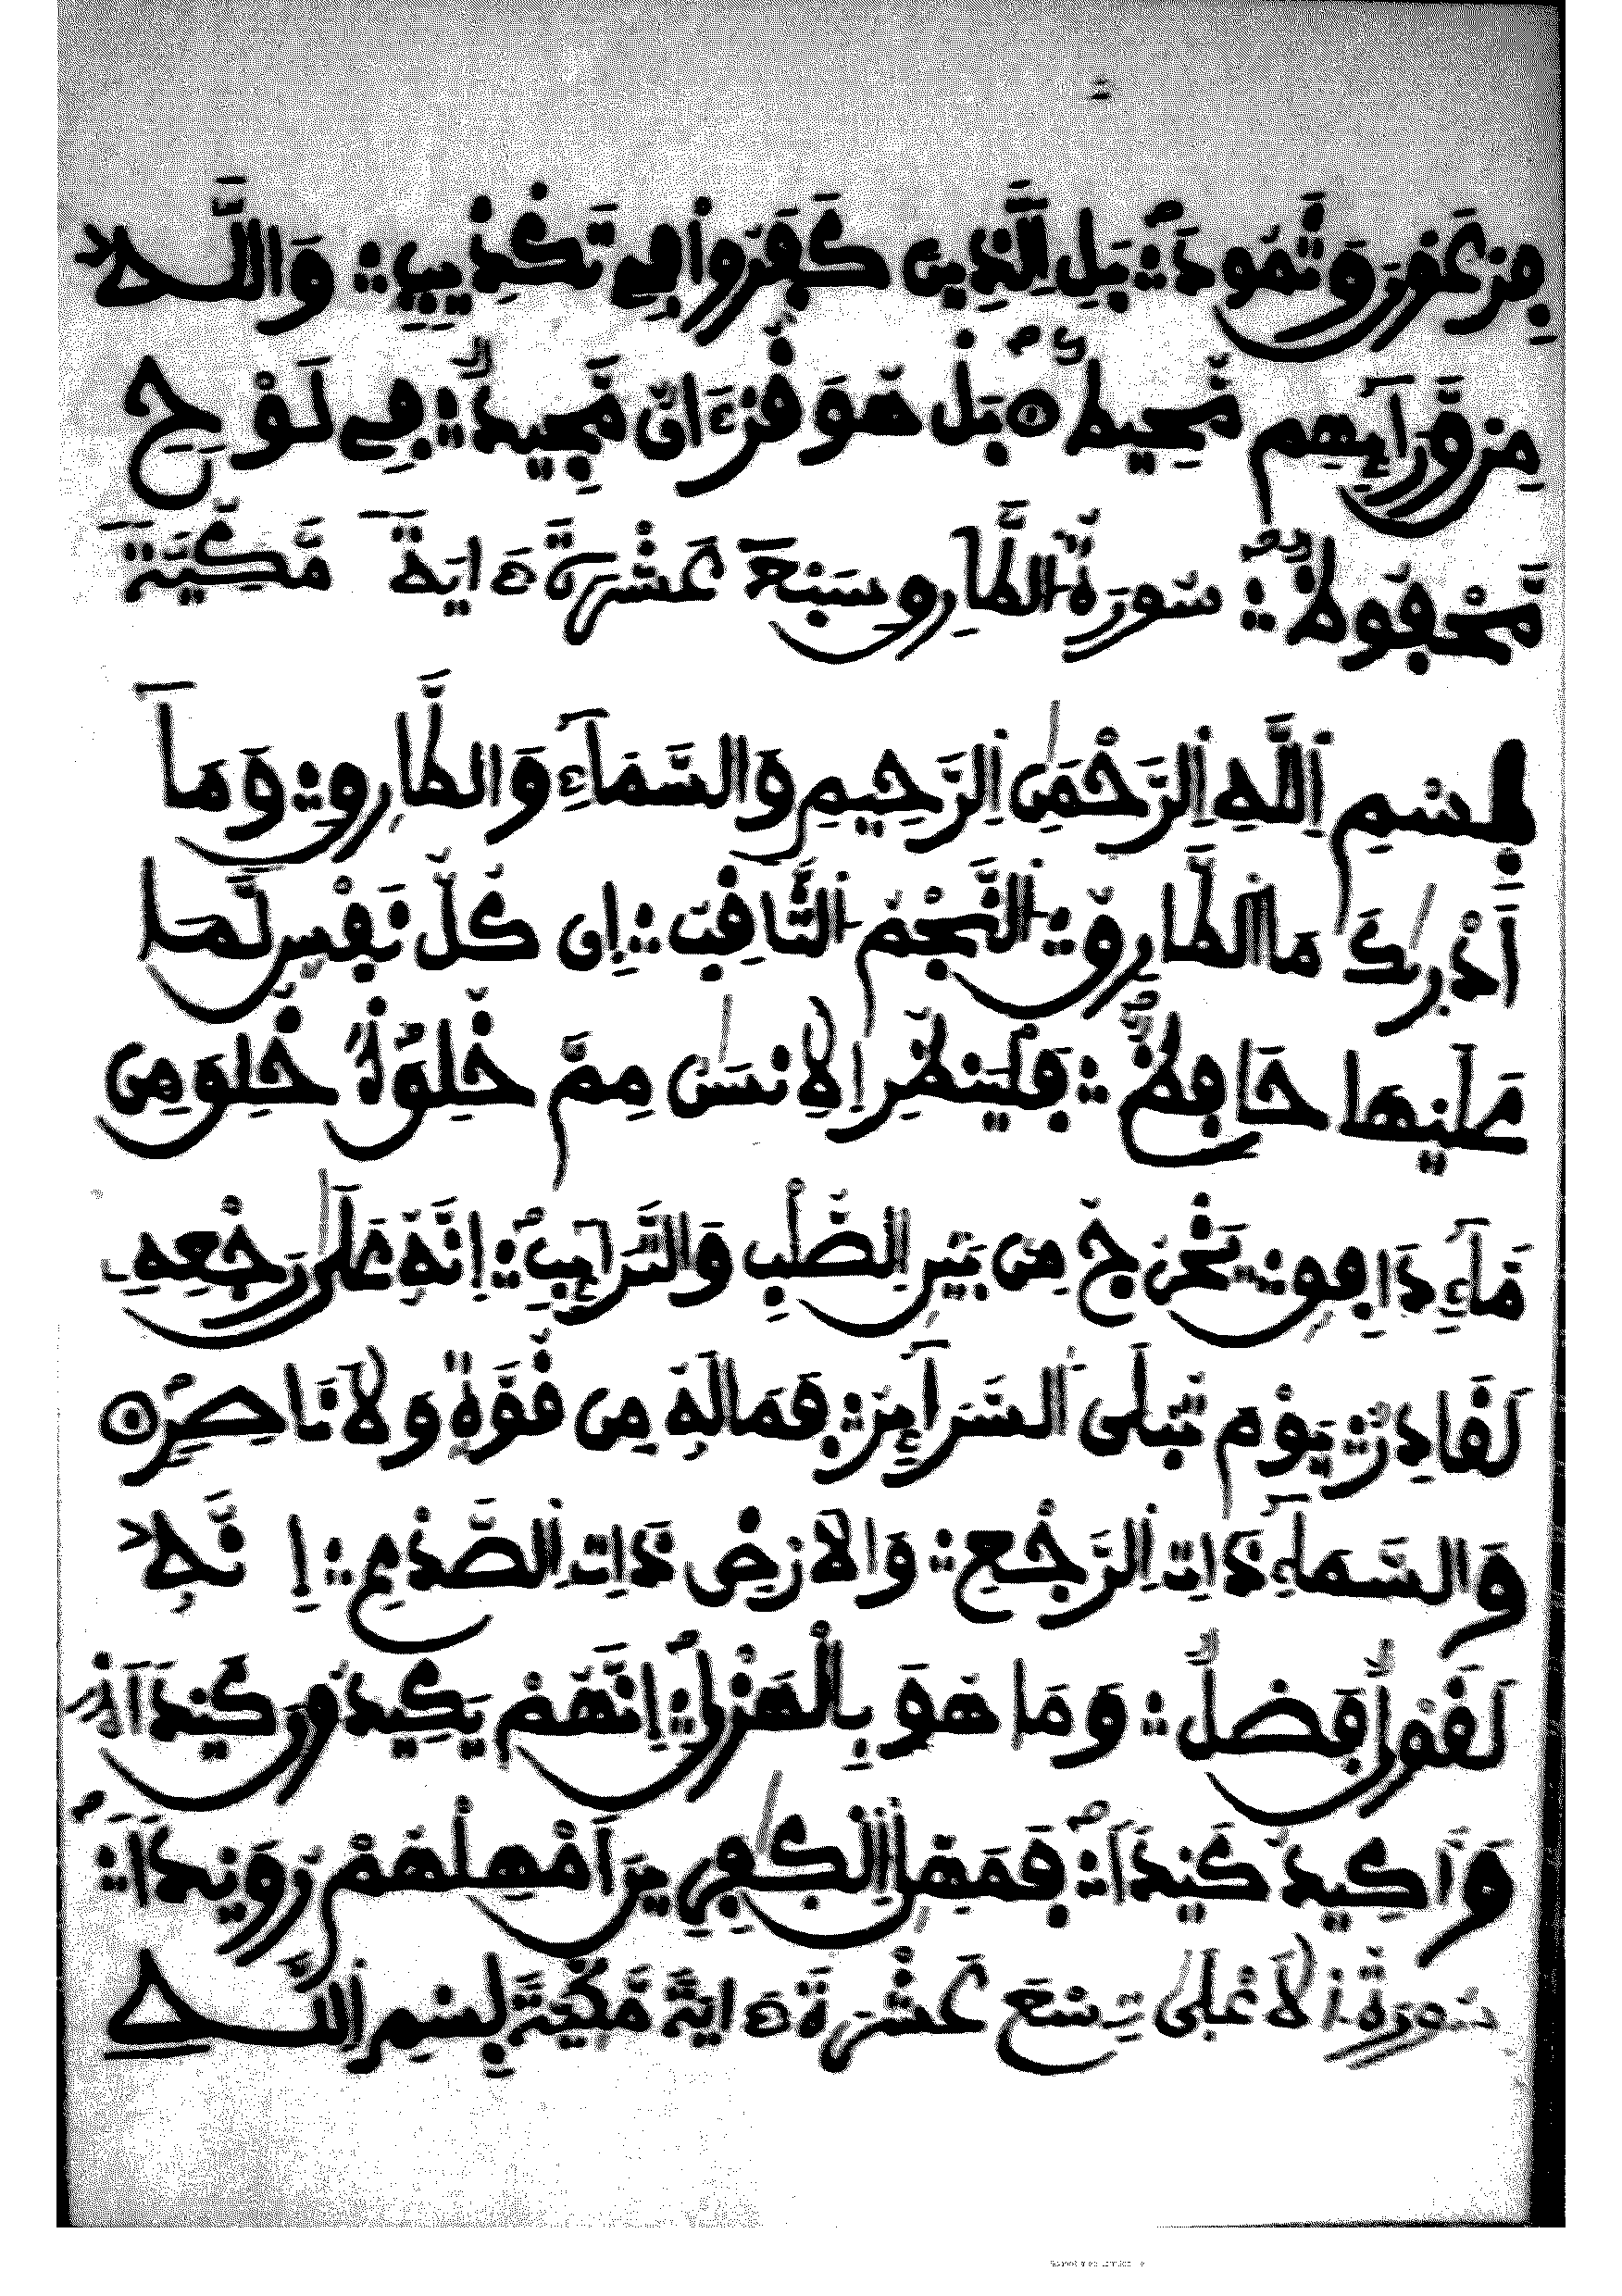 فِرْعَوْنَ وَثَمُودَ بَلِ الَّذِينَ كَفَرُوا فِي تَكْذِيبٍ وَاللَّهُ
مِنْ وَرَآئِهِم مُّحِيطٌ بَلْ هُوَ قُرْءَانٌ مَّجِيدٌ فِي لَوْحٍ
مَّحْفُوظٍ سورة الطارق سبع عشرة اية مكية
بِسْمِ اللَّهِ الرَّحْمَٰنِ الرَّحِيمِ وَالسَّمَآءِ وَالطَّارِقِ وَمَآ
أَدْرَىٰكَ مَا الطَّارِقُ النَّجْمُ الثَّاقِبُ إِن كُلُّ نَفْسٍ لَّمَا
عَلَيْهَا حَافِظٌ فَلْيَنظُرِ الِانسَٰنُ مِمَّ خُلِقَ خُلِقَ مِن
مَّآءٍ دَافِقٍ يَخْرُجُ مِن بَيْنِ الصُّلْبِ وَالتَّرَآئِبِ إِنَّهُ عَلَىٰ رَجْعِهِ
لَقَادِرٌ يَوْمَ تُبْلَى السَّرَآئِرُ فَمَا لَهُ مِن قُوَّةٍ وَلَا نَاصِرٍ
وَالسَّمَآءِ ذَاتِ الرَّجْعِ وَالَارْضِ ذَاتِ الصَّدْعِ إِنَّهُ
لَقَوْلٌ فَصْلٌ وَمَا هُوَ بِالْهَزْلِ إِنَّهُمْ يَكِيدُونَ كَيْدًا
وَأَكِيدُ كَيْدًا فَمَهِّلِ الْكَٰفِرِينَ أَمْهِلْهُمْ رُوَيْدًا
سورة الاعلى تسع عشرة اية مكية بسم الله